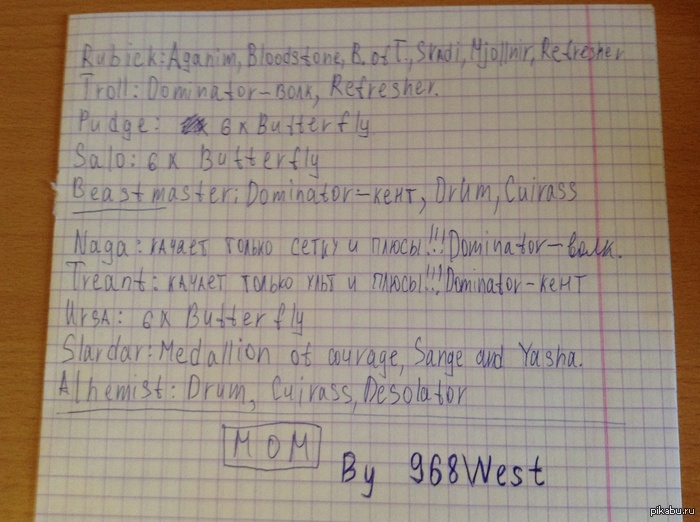 Rubick: Aganim, Bloodstone, B. of T., Skadi, Mjollnir, Refresher
Troll: Dominator-волк, Refresher.
Pudge: 6 x Butterfly
Salo: 6 x Butterfly
Beastmaster: Dominator-кент, Drum, Cuirass
Naga: качает только сетку и плюсы!!! Dominator-волк.
Treant: качает только ульт и плюсы!!! Dominator-кент
Ursa: 6 x Butterfly
Slardar: Medallion of courage, Sange and Yasha.
Alhemist: Drum, Cuirass, Desolator
MOM
By 968West
pikabu.ru